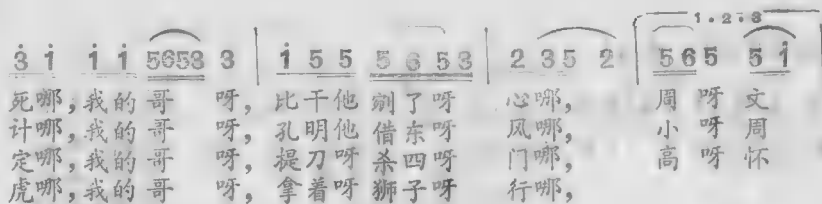 1.2.3
3 1 1 1 5653 3 | 1 5 5 5 6 5 3 | 2 3 5 2 | 5 6 5 5 1
死哪，我的哥 呀，比干他剜了呀 心哪， 周 呀 文
计哪，我的哥 呀，孔明他借东呀 风哪， 小 呀 周
定哪，我的哥 呀，提刀呀杀四呀 门哪， 高 呀 怀
虎哪，我的哥 呀，拿着呀狮子呀 行哪，